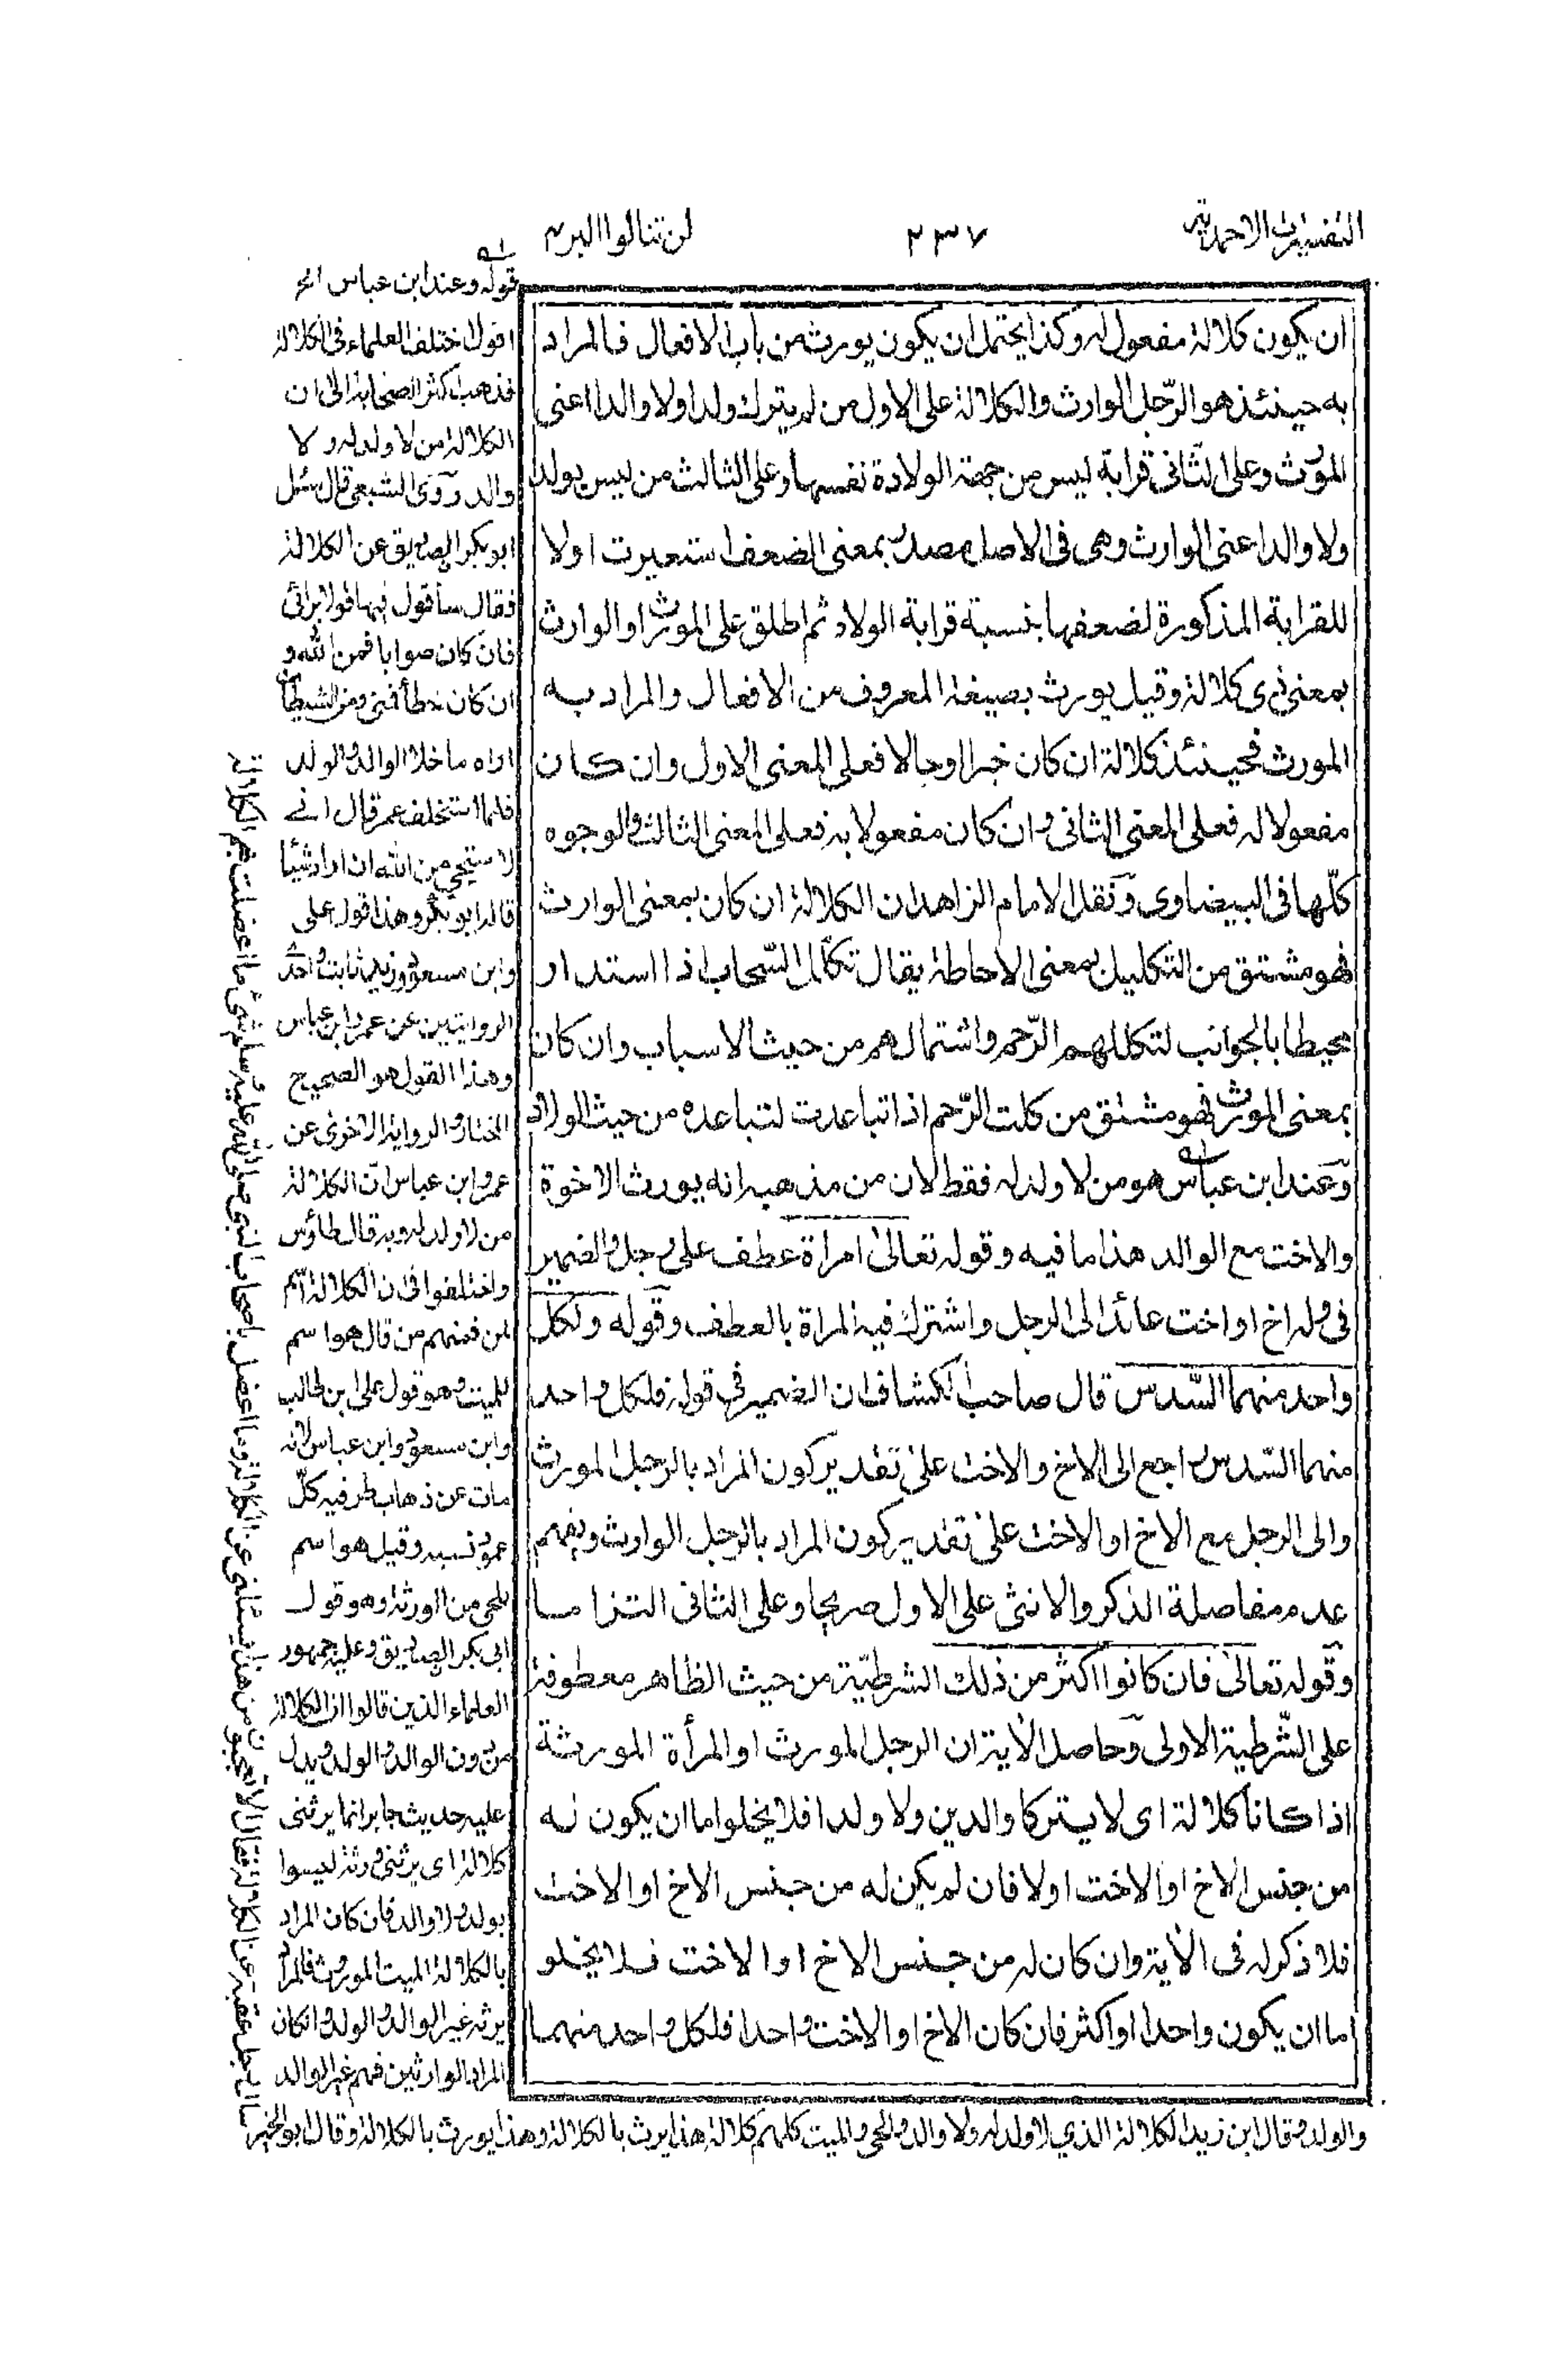 التفسيرات الاحمدية
٢٣٧
لن تنالوا البر ٤
ان يكون كلالة مفعول له وكذا يحتمل ان يكون يورث من باب الافعال فالمراد
به حينئذ هو الرّجل الوارث والكلالة على الاول من لم يترك ولدا ولا والدا اعنى
المورث وعلى الثانى قرابة ليس من جهة الولادة نفسها وعلى الثالث من ليس بولد
ولا والد اعنى الوارث وهى فى الاصل مصدر بمعنى الضعف استعيرت اولا
للقرابة المذكورة لضعفها بنسبة قرابة الولاد ثم اطلق على المورث او الوارث
بمعنى ذى كلالة وقيل يورث بصيغة المعروف من الافعال والمراد به
المورث فحينئذ كلالة ان كان خبرا او حالا فعلى المعنى الاول وان كان
مفعولا له فعلى المعنى الثانى وان كان مفعولا به فعلى المعنى الثالث والوجوه
كلّها فى البيضاوى ونقل الامام الزاهد ان الكلالة ان كان بمعنى الوارث
فهو مشتق من التكليل بمعنى الاحاطة يقال تكلّل السّحاب اذا استدار
محيطا بالجوانب لتكللهم الرّحم واشتمالهم من حيث الاسباب وان كان
بمعنى المورث فهو مشتق من كلت الرّحم اذا تباعدت لتباعده من حيث الولاد
وعند ابن عباس هو من لا ولد له فقط لان من مذهبه انه يورث الاخوة
والاخت مع الوالد هذا ما فيه وقوله تعالىٰ امراة عطف على رجل والضمير
فى وله اخ او اخت عائد الى الرجل واشترك فيه المراة بالعطف وقوله ولكل
واحد منهما السّدس قال صاحب الكشاف ان الضمير فى قوله فلكل واحد
منهما السّدس راجع الى الاخ والاخت علىٰ تقدير كون المراد بالرجل المورث
والى الرجل مع الاخ او الاخت علىٰ تقدير كون المراد بالرجل الوارث ويفهم
عدم مفاصلة الذكر والانثى على الاول صريحا وعلى الثانى التزاما
وقوله تعالىٰ فان كانوا اكثر من ذلك الشرطيّة من حيث الظاهر معطوفة
على الشّرطية الاولى وحاصل الأية ان الرجل المورث او المرأة المورثة
اذا كانا كلالة اى لا يتركا والدين ولا ولدا فلا يخلوا ما ان يكون له
من جنس الاخ او الاخت اولا فان لم يكن له من جنس الاخ او الاخت
فلا ذكر له فى الأية وان كان له من جنس الاخ او الاخت فلا يخلو
اما ان يكون واحدا او اكثر فان كان الاخ او الاخت واحدا فلكل واحد منهما
قوله وعند ابن عباس الخ
اقول اختلف العلماء فى الكلالة
فذهب اكثر الصحابة الى ان
الكلالة من لا ولد له ولا
والد روى الشعبى قال سئل
ابو بكر الصديق عن الكلالة
فقال ساقول فيها قولا برائى
فان كان صوابا فمن الله و
ان كان خطأ فمنى ومن الشيطان
اراه ما خلا الوالد والولد
فلما استخلف عمر قال انى
لاستحيى من الله ان اراد شيئا
قاله ابو بكر وهذا قول على
وابن مسعود وزيد بن ثابت واحدى
الروايتين عن عمر وابن عباس
وهذا القول هو الصحيح
المختار والرواية الاخرى عن
عمر وابن عباس ان الكلالة
من لا ولد له وبه قال طاؤس
واختلفوا فى ان الكلالة اسم
لمن فمنهم من قال هو اسم
للميت وهو قول على ابن طالب
وابن مسعود وابن عباس لانه
مات عن ذهاب طرفيه كلّ
عمود نسبه وقيل هو اسم
للحى من الورثة وهو قول
ابى بكر الصديق وعليه جمهور
العلماء الذين قالوا ان الكلالة
من دون الوالد والولد ويدل
عليه حديث جابر انما يرثنى
كلالة اى يرثنى ورثة ليسوا
بولد ولا والد فان كان المراد
بالكلالة الميت المورث فالمراد
يرثه غير الوالد والولد وان كان
المراد الوارثين فهم غير الوالد
والولد وقال ابن زيد الكلالة الذي لا ولد له ولا والد والحى والميت كلهم كلالة هذا يرث بالكلالة وهذا يورث بالكلالة وقال ابو الخير
سال رجل عقبة عن الكلالة فقال الا تعجبون من هذا يسئلنى عن الكلالة وما اعضل باصحاب النبى صلى الله عليه وسلم شئ ما اعضلت بهم الكلالة